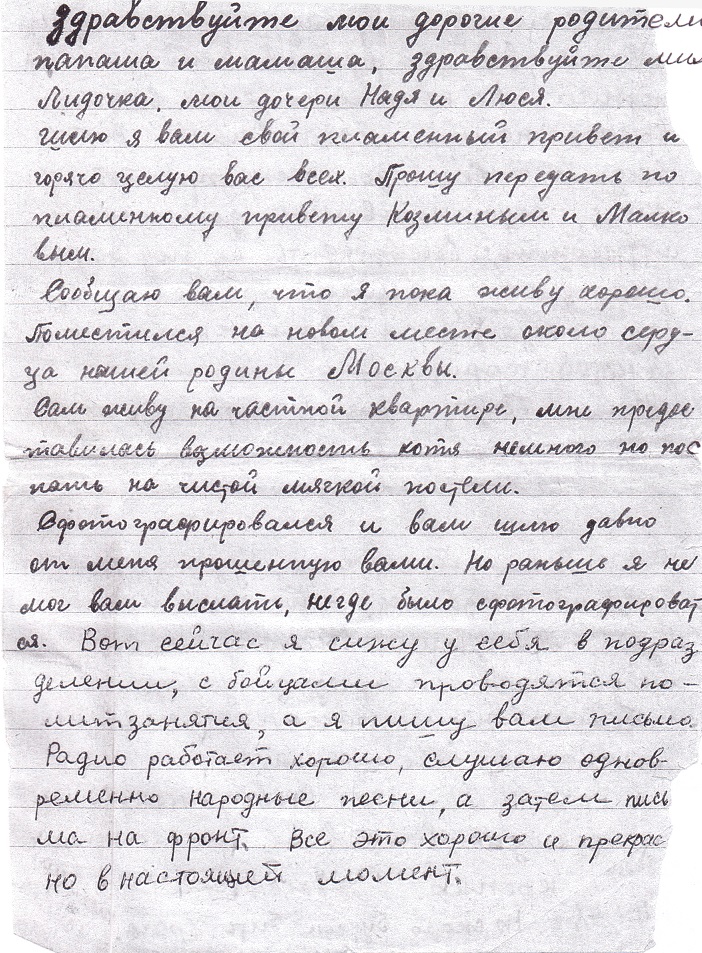 Здравствуйте мои дорогие родители
папаша и мамаша, здравствуйте
Лидочка, мои дочери Надя и Люся.
Шлю я вам свой пламенный привет и
горячо целую вас всех. Прошу передать по
пламенному привету Козминым и Малко
вым.
Сообщаю вам, что я пока живу хорошо.
Поместился на новом месте около серд-
ца нашей родины Москвы.
Сам живу на частной квартире, мне предос
тавилась возможность хотя немного но пос
пать на чистой мягкой постели.
Сфотографировался и вам шлю давно
от меня прошенную вами. Но раньше я не
мог вам выслать, негде было сфотографироват
ся. Вот сейчас я сижу у себя в подраз
делении, с бойцами проводятся по-
литзанятия, а я пишу вам письмо
Радио работает хорошо, слушаю однов-
ременно народные песни, а затем пись
ма на фронт. Все это хорошо и прекрас
но в настоящей момент.